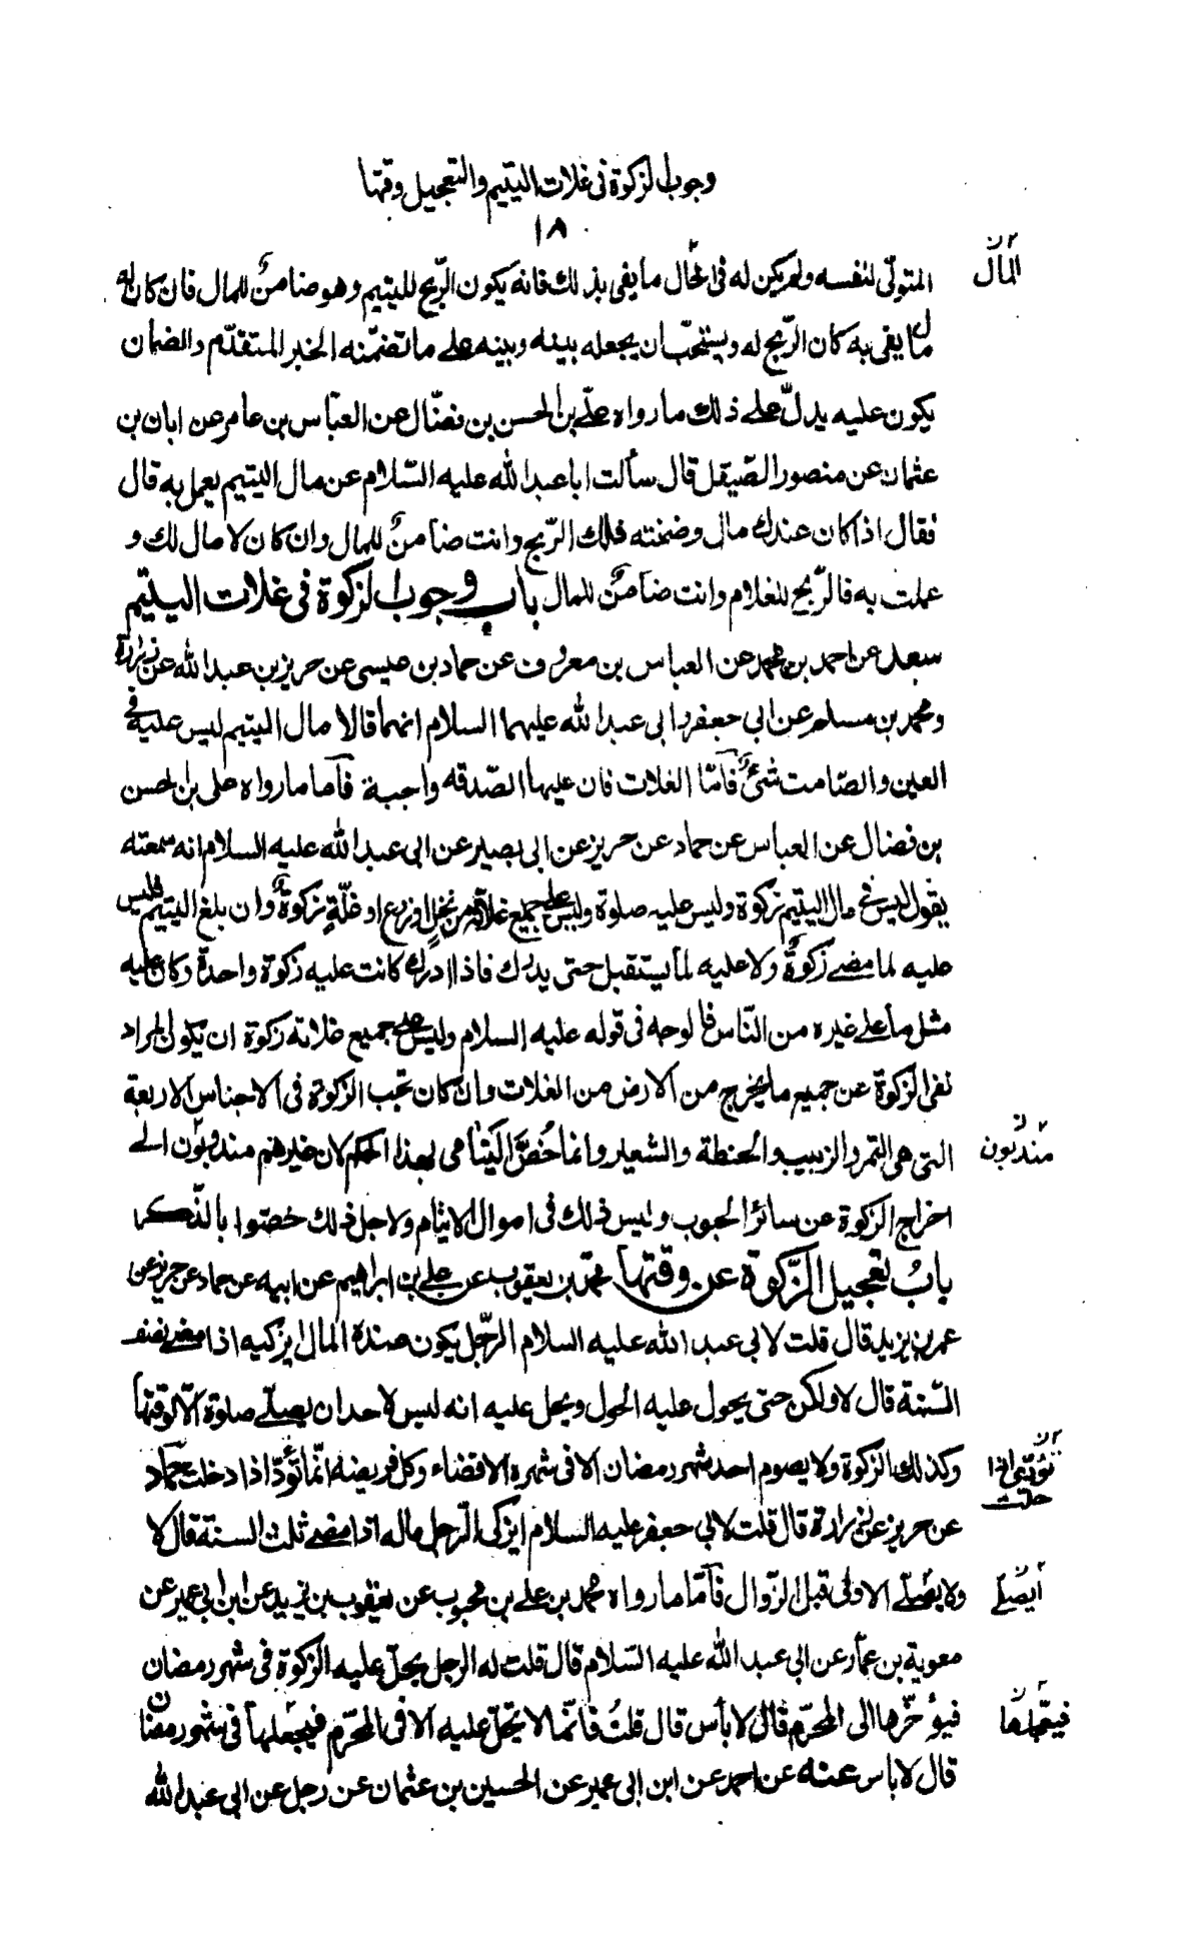 وجوب الزكوة فى غلات اليتيم والتعجيل وقتها
١٨
المتولّى لنفسه ولم يكن له فى الحال ما يفى بذلك فانه يكون الرّبح لليتيم وهو ضامنٌ للمال فان كان له
المال
ما يفى به كان الرّبح له ويستحبّ ان يجعله بينه وبينه على ما تضمّنه الخبر المتقدّم والضمان
يكون عليه يدلّ على ذلك ما رواه علىّ بن الحسن بن فضّال عن العبّاس بن عامر عن ابان بن
عثمان عن منصور الصّيقل قال سألت ابا عبد الله عليه السّلام عن مال اليتيم يعمل به قال
فقال اذا كان عندك مال وضمنته فلك الرّبح وانت ضامنٌ للمال وان كان لا مال لك و
عملت به فالرّبح للغلام وانت ضامنٌ للمال باب وجوب الزكوة فى غلات اليتيم
سعد عن احمد بن محمد عن العباس بن معروف عن حماد بن عيسى عن حريز بن عبد الله عن زرارة
ومحمد بن مسلم عن ابى جعفر وابى عبد الله عليهما السلام انهما قالا مال اليتيم ليس عليه فى
العين والصّامت شئٌ فأمّا الغلات فان عليها الصّدقه واجبة فأما ما رواه على بن الحسن
بن فضال عن العباس عن حماد عن حريز عن ابى بصير عن ابى عبد الله عليه السلام انه سمعته
يقول ليس فى مال اليتيم زكوة وليس عليه صلوة وليس على جميع غلاته من نخلٍ او زرع او غلّةٍ زكوةٌ وان بلغ اليتيم فليس
عليه لما مضى زكوةٌ ولا عليه لما يستقبل حتى يدرك فاذا ادرك كانت عليه زكوة واحدة وكان عليه
مثل ما على غيره من النّاس فالوجه فى قوله عليه السلام وليس على جميع غلاته زكوة ان يكون المراد
نفى الزكوة عن جميع ما يخرج من الارض من الغلات وان كان تجب الزكوة فى الاجناس الاربعة
التى هى التمر والزبيب والحنطة والشعير وانما خُصَّ اليتامى بهذا الحكم لان غيرهم مندوبون الى
مندوبون
اخراج الزكوة عن سائر الحبوب وليس ذلك فى اموال الايتام ولاجل ذلك خصّوا بالذّكر
بابُ تعجيل الزّكوة عن وقتها محمد بن يعقوب عن على بن ابراهيم عن ابيه عن حماد عن حريز عن
عمر بن يزيد قال قلت لابى عبد الله عليه السلام الرّجل يكون عنده المال ايزكيه اذا مضى نصف
السّنة قال لا ولكن حتى يحول عليه الحول ويحل عليه انه ليس لاحد ان يصلّى صلوة الّا لوقتها
وكذلك الزكوة ولا يصوم احد شهر رمضان الا فى شهره الا قضاء وكل فريضة انّما تؤدّ اذا دخلت حمّاد
تؤدّى اذا
حلّت
عن حريز عن زرارة قال قلت لابى جعفر عليه السلام ايزكى الرّجل ماله اذا مضى ثلث السنة قال لا
ولا يصلّى الاولى قبل الزّوال فأمّا ما رواه محمد بن على بن محبوب عن يعقوب بن يزيد عن ابن ابى عمير عن
أيصلّى
معوية بن عمّار عن ابى عبد الله عليه السّلام قال قلت له الرجل يحلّ عليه الزكوة فى شهر رمضان
فيؤخّرها الى المحرّم قال لا بأس قال قلتُ فانّما لا تحلّ عليه الا فى المحرّم فيجعلها فى شهر رمضان
فيعجّلها
قال لا باس عنه عن احمد عن ابن ابى عمير عن الحسين بن عثمان عن رجل عن ابى عبد الله